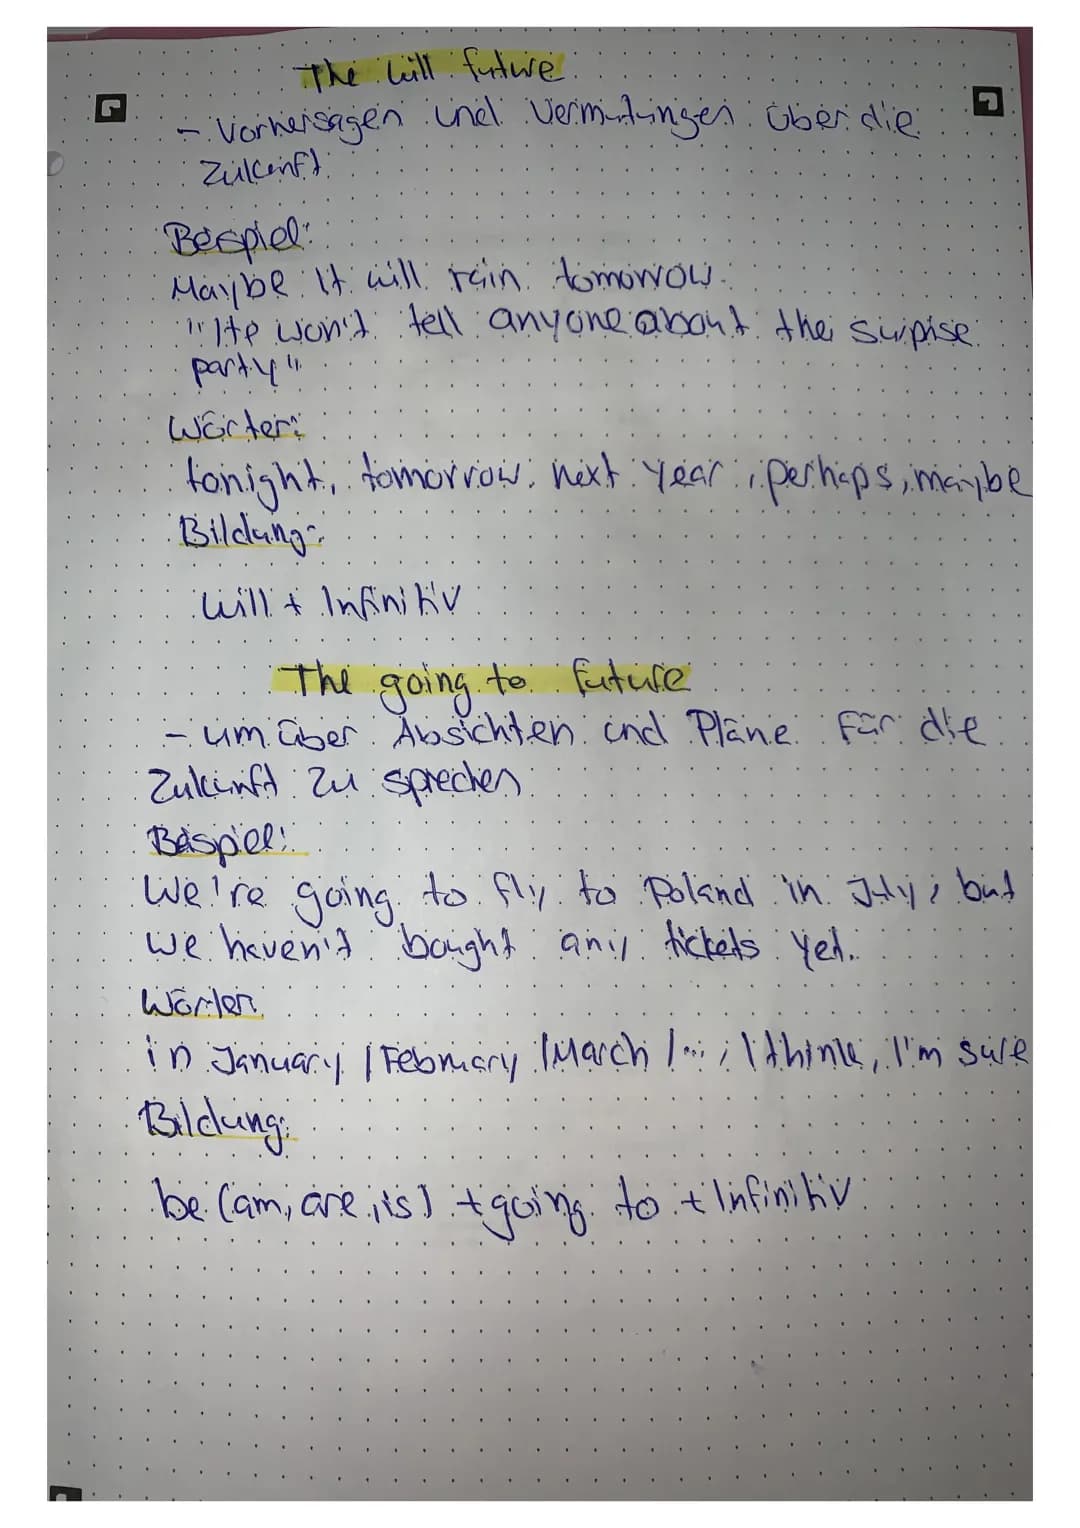 The will future
- Vorhersagen und Vermutungen über die
Zukunft
Beispiel:
Maybe it will rain tomorrow.
"He won't tell anyone about the surpise
party"
Wörter:
tonight, tomorrow, next year, perhaps, maybe
Bildung:
will + Infinitiv
The going to future
- um über Absichten und Pläne für die
Zukunft zu sprechen
Beispiel:
We're going to fly to Poland in July, but
we haven't bought any tickets yet.
Wörter:
in January / February / March / ..., I think, I'm sure
Bildung:
be (am, are, is) + going to + Infinitiv